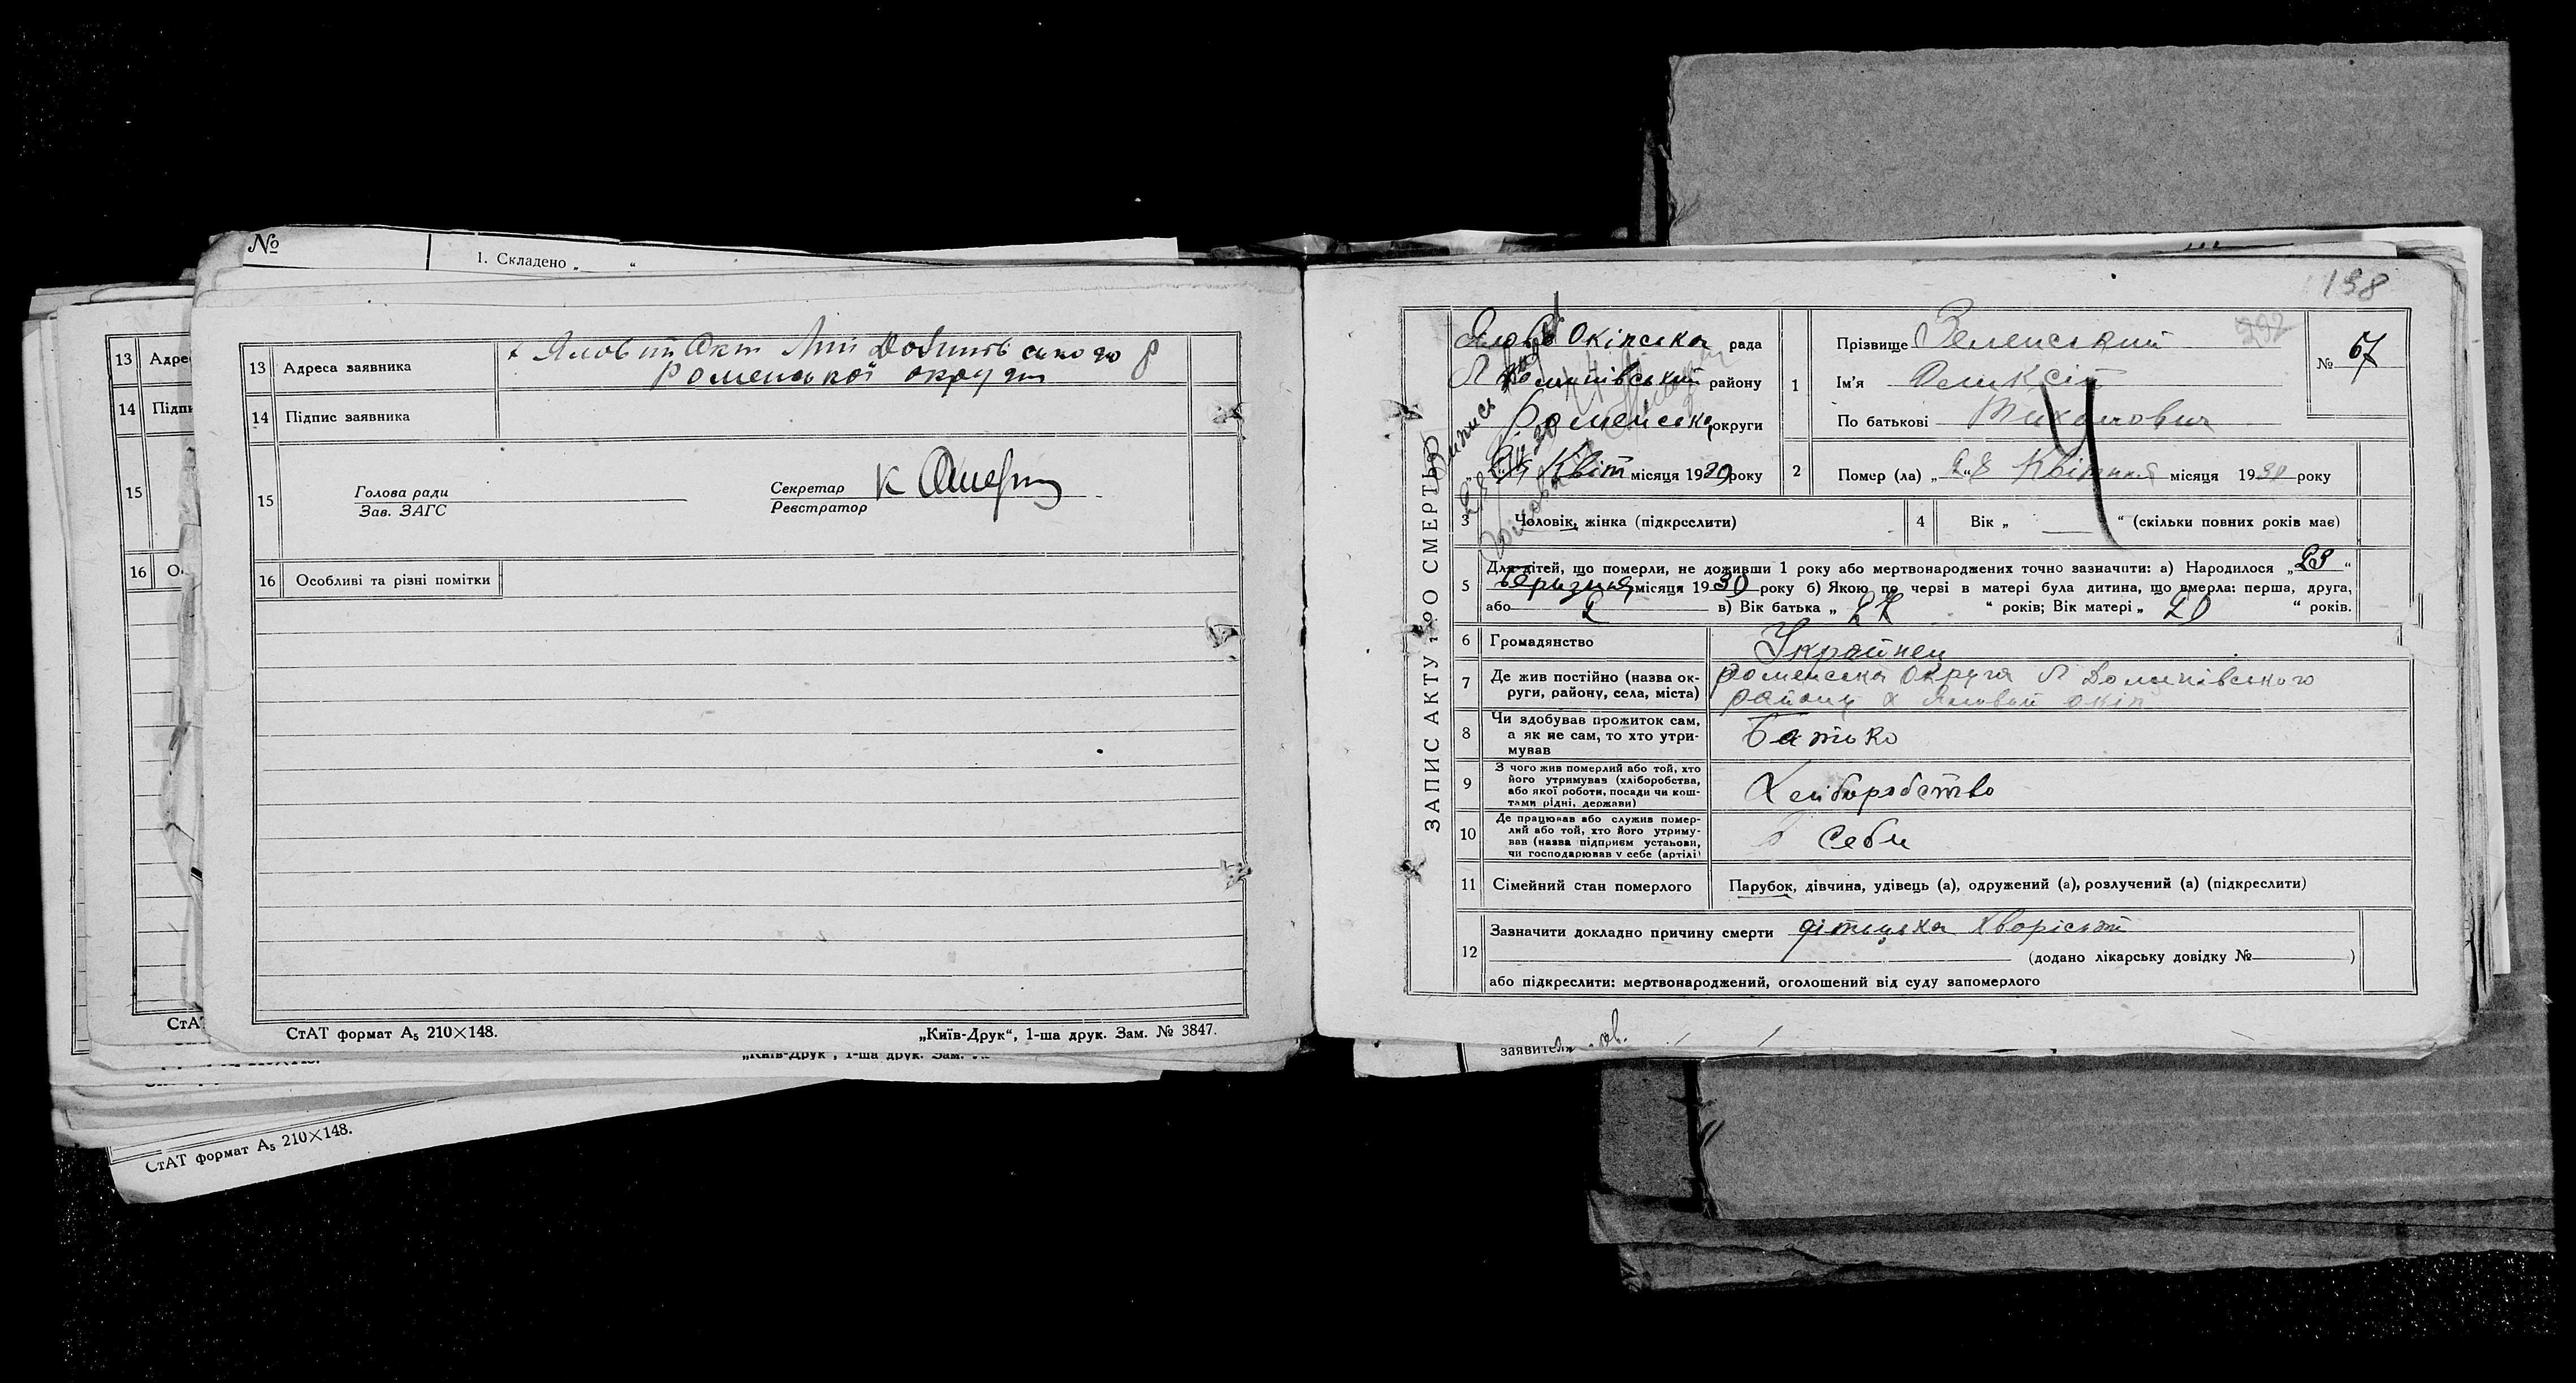 №
1. Складено „ “
13 Адре
14 Підпи
15
16 О
СтА
13 Адреса заявника
Роменської округи
14 Підпис заявника
15 Голова ради
Зав. ЗАГС
Секретар
Реєстратор
16 Особливі та різні помітки
СтАТ формат А5 210×148.
„Київ-Друк“, 1-ша друк. Зам. № 3847.
„Київ-Друк“, 1-ша друк. Зам.
СтАТ формат А5 210×148.
198
ЗАПИС АКТУ ПРО СМЕРТЬ
Окіпська рада
району
Роменська округи
Квіт місяця 1930 року
1 Прізвище Зеленський
Ім'я Олексій
По батькові Тихонович
№ 67
2 Помер (ла) „28 Квітня місяця 1930 року
3 Чоловік, жінка (підкреслити)
4 Вік „ — “ (скільки повних років має)
5 Для дітей, що померли, не доживши 1 року або мертвонароджених точно зазначити: а) Народилося „23“
Березня місяця 1930 року б) Якою по черві в матері була дитина, що вмерла: перша, друга,
або 2 в) Вік батька „27 “ років; Вік матері „ 20 “ років.
6 Громадянство Українец
7 Де жив постійно (назва округи, району, села, міста) Роменська Округа
району х Яловий окіп
8 Чи здобував прожиток сам,
а як не сам, то хто утримував
Батько
9 З чого жив померлий або той, хто
його утримував (хліборобства,
або якої роботи, посади чи коштами рідні, держави)
Хліборобство
10 Де працював або служив померлий або той, хто його утримував (назва підприєм установи,
чи господарював у себе (артілі)
в себе
11 Сімейний стан померлого Парубок, дівчина, удівець (а), одружений (а), розлучений (а) (підкреслити)
12 Зазначити докладно причину смерти дітицька хворість
(додано лікарську довідку № )
або підкреслити: мертвонароджений, оголошений від суду запомерлого
заявителя